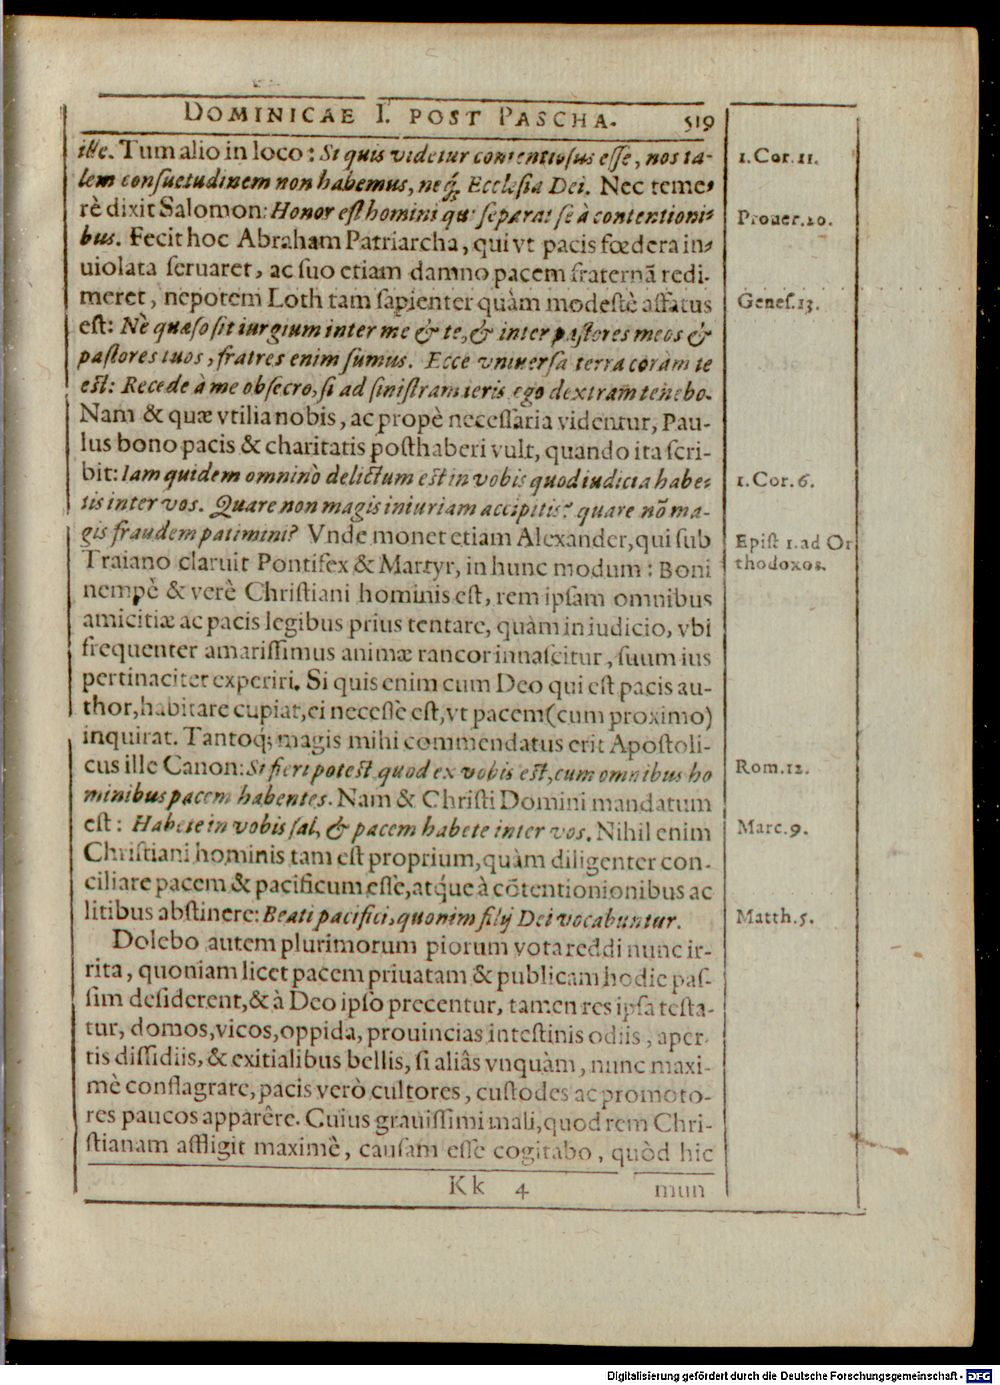 DOMINICAE I. POST PASCHA. 519
ille. Tum alio in loco: Si quis videtur contentiosus esse, nos ta- 1. Cor. 11.
lem consuetudinem non habemus, neq; Ecclesia Dei. Nec teme-
rè dixit Salomon: Honor est homini qui separat se à contentioni- Prouer. 20.
bus. Fecit hoc Abraham Patriarcha, qui vt pacis fœdera in-
uiolata seruaret, ac suo etiam damno pacem fraternã redi-
meret, nepotem Loth tam sapienter quàm modestè affatus Genes. 13.
est: Nè quæso sit iurgium inter me & te, & inter pastores meos &
pastores tuos, fratres enim sumus. Ecce vniuersa terra coràm te
est: Recede à me obsecro, si ad sinistram ieris, ego dextram tenebo.
Nam & quæ vtilia nobis, ac propè necessaria videntur, Pau-
lus bono pacis & charitatis posthaberi vult, quando ita scri-
bit: Iam quidem omninò delictum est in vobis quod iudicia habe- 1. Cor. 6.
tis inter vos. Quare non magis iniuriam accipitis? quare nõ ma-
gis fraudem patimini? Vnde monet etiam Alexander, qui sub Epist 1. ad Or
Traiano claruit Pontifex & Martyr, in hunc modum: Boni thodoxos.
nempè & verè Christiani hominis est, rem ipsam omnibus
amicitiæ ac pacis legibus prius tentare, quàm in iudicio, vbi
frequenter amarissimus animæ rancor innascitur, suum ius
pertinaciter experiri. Si quis enim cum Deo qui est pacis au-
thor, habitare cupiat, ei necesse est, vt pacem (cum proximo)
inquirat. Tantoq; magis mihi commendatus erit Apostoli-
cus ille Canon: Si fieri potest quod ex vobis est, cum omnibus ho Rom. 12.
minibus pacem habentes. Nam & Christi Domini mandatum
est: Habete in vobis sal, & pacem habete inter vos. Nihil enim Marc. 9.
Christiani hominis tam est proprium, quàm diligenter con-
ciliare pacem & pacificum esse, atq́ue à cõtentionionibus ac
litibus abstinere: Beati pacifici, quonim filij Dei vocabuntur. Matth. 5.
Dolebo autem plurimorum piorum vota reddi nunc ir-
rita, quoniam licet pacem priuatam & publicam hodie pas-
sim desiderent, & à Deo ipso precentur, tamen res ipsa testa-
tur, domos, vicos, oppida, prouincias intestinis odiis, aper-
tis dissidiis, & exitialibus bellis, si aliâs vnquàm, nunc maxi-
mè conflagrare, pacis verò cultores, custodes ac promoto-
res paucos apparêre. Cuius grauissimi mali, quod rem Chri-
stianam affligit maximè, causam esse cogitabo, quòd hic
Kk 4 mun
Digitalisierung gefördert durch die Deutsche Forschungsgemeinschaft - DFG